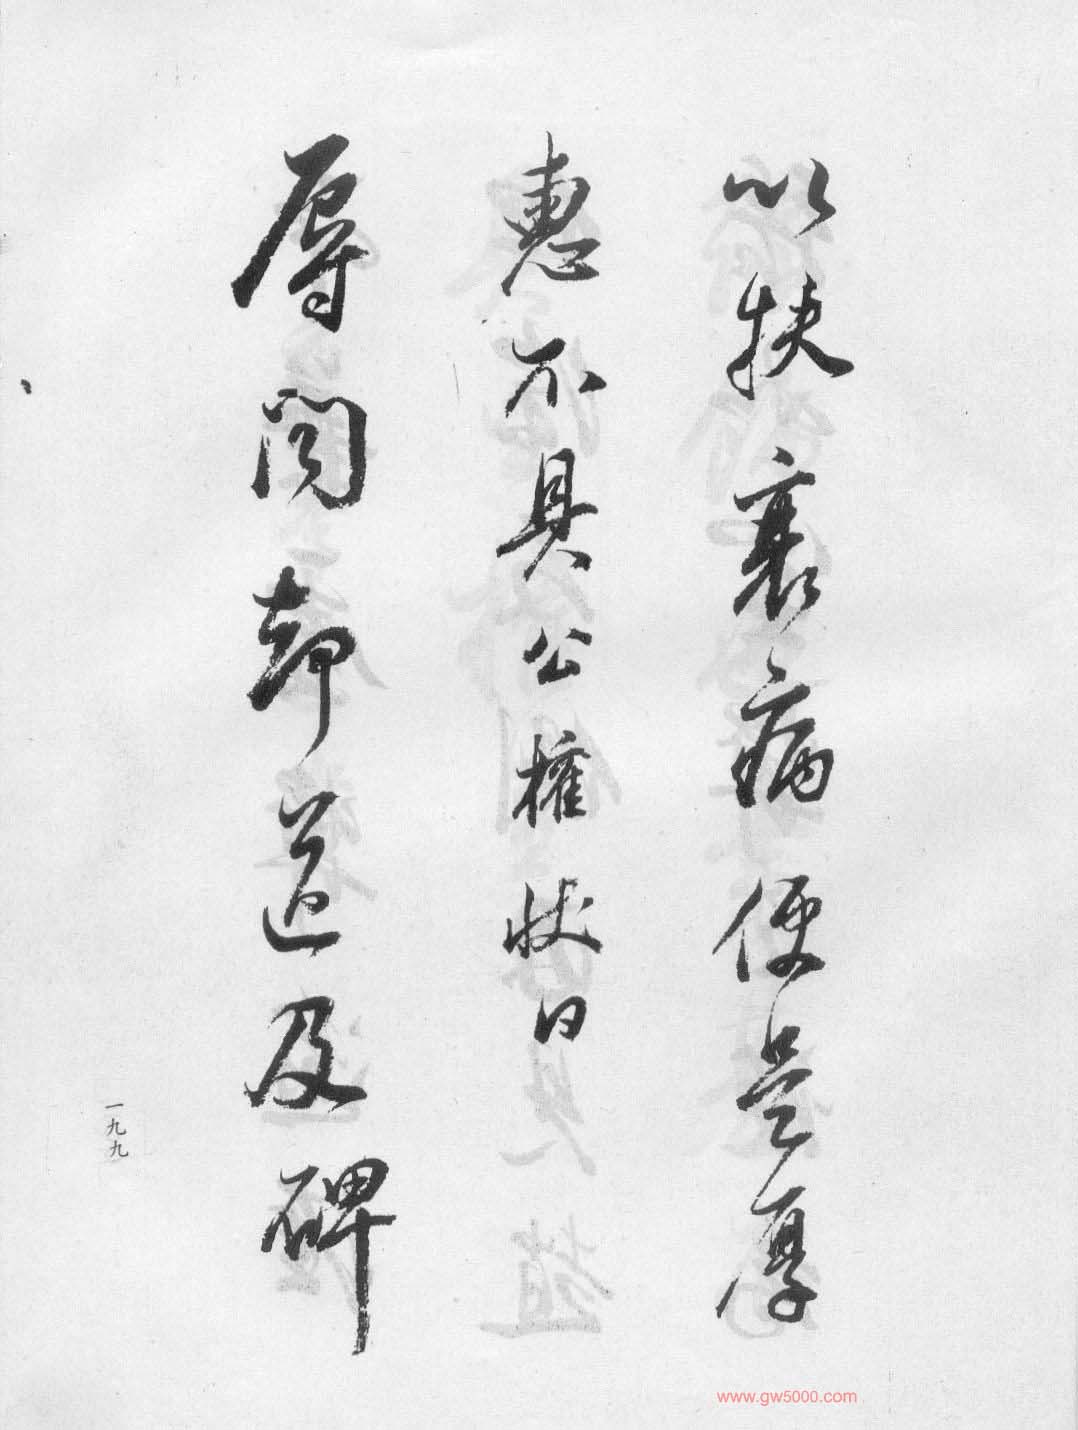 以扶衰病便是厚
惠不具公權狀白
辱問却道及碑
一九九
www.gw5000.com